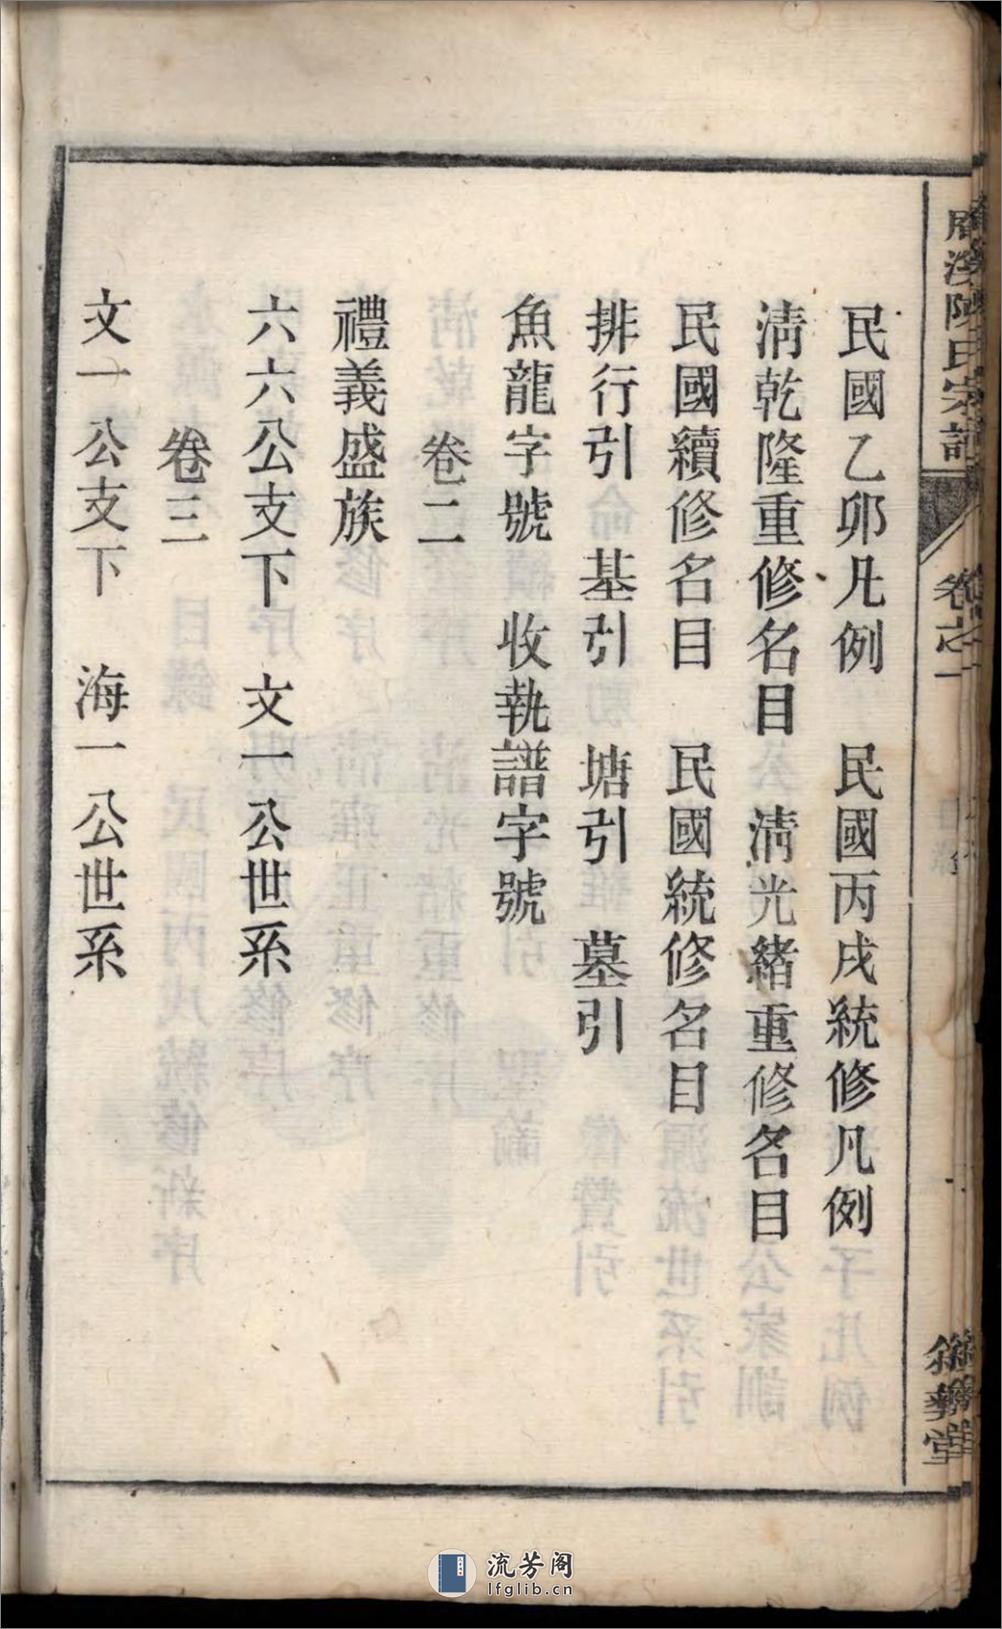 民國乙卯凡例　民國丙戌統修凡例
淸乾隆重修名目　淸光緖重修名目
民國續修名目　民國統修名目
排行引　基引　塘引　墓引
魚龍字號　收執譜字號
卷二
禮義盛族
六六公支下　文一公世系
卷三
文一公支下　海一公世系
陳氏宗譜
卷之一
堂
流芳阁
lfglib.cn